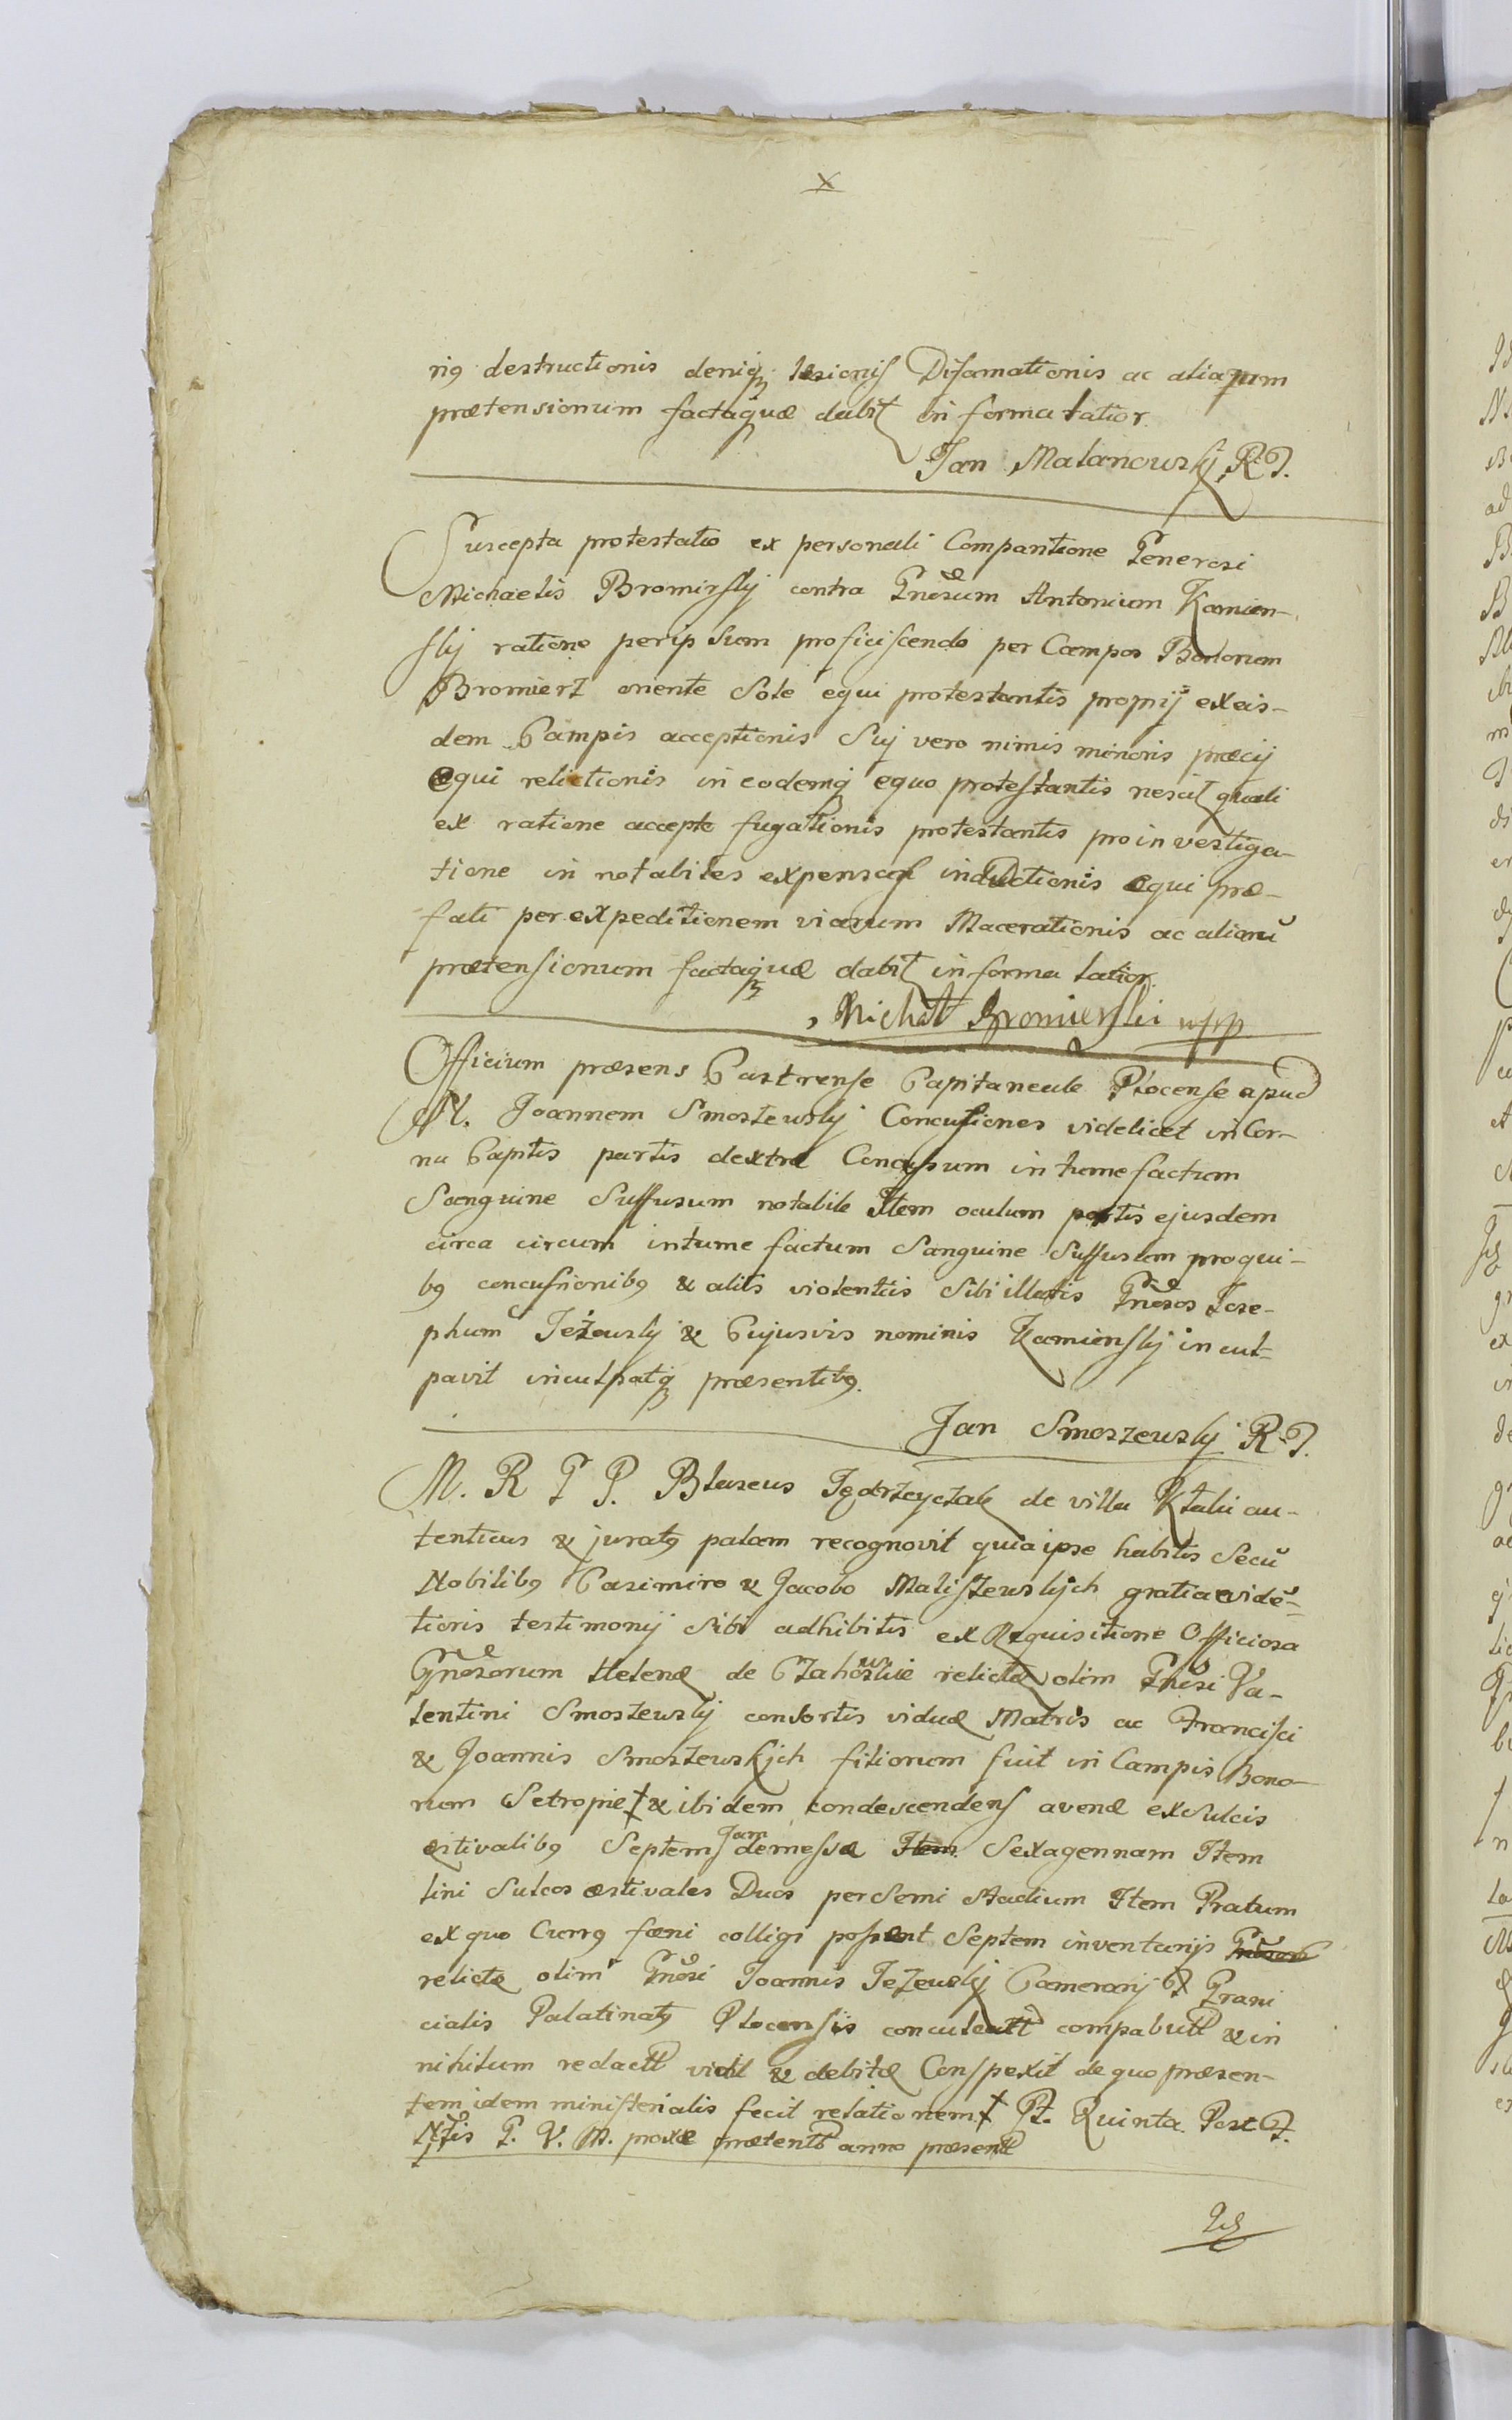 x
rig destructionis deniq; lesionis Difamationis ac aliarum
prætensionum factaq; quæ dabit in forma latior.
Jan Malanowskj R T.
Suscepta protestatio ex personali Comparitione Generosi
Michaelis Bromirskj contra Gnõsum Antonium Kamien-
skij ratione per ipsum proficiscendo per Campos Bonorum
Bromierz oriente Sole equi protestantis proprij ex eis-
dem Campis acceptionis Sui vero nimis minoris præcij
equi relictionis in eodemq; equo protestantis nescit quali
ex ratione accepto fugationis protestantis pro investiga-
tione in notabiles expensas inductionis equi præ-
fati per expeditionem viarum Macerationis ac aliarũ
prætensionum factaq; quæ dabit in forma latior.
Michał Bromierski mpp
Officium præsens Castrense Capitaneale Plocense apud
N. Joannem Smoszewskj Concussiones videlicet in Cor-
nu Capitis partis dextræ Concussum intumefactum
Sanguine Suffusum notabile Item oculum partis ejusdem
circa circum intumefactum Sanguine Suffusum pro qui-
bg concussionibg & aliis violentiis Sibi illatis Gnõsos Jose-
phum Jeżewskj & Cujusvis nominis Kamienskj incul-
pavit inculpatq; præsentibg.
Jan Smoszewskj R T.
M. R G P. Blaseus Jędrzeyczak de villa Ktalu au-
tenticus & juratg palam recognovit quia ipse habitis Secũ
Nobilibg Casimiro & Jacobo Maliszewskich gratia evidẽ-
tioris testimonij Sibi adhibitis ex Requisitione Officiosa
Gnõsorum Helenæ de relictæ olim Gnõsi Va-
lentini Smoszewskj consortis viduæ Matris ac Francisci
& Joannis Smoszewskich filiorum fuit in Campis Bono-
rum Setropie & ibidem condescendens avenæ ex Sulcis
æstivalibg Septem Jam demessæ Item Sexagennam Item
lini Sulcos æstivales Duos per Semi Stadium Item Pratum
ex quo Currg fœni colligi possent Septem inventarijs Gnõsæ
relictæ olim Gnõsi Joannis Jeżewskj Camerarij Grani
cialis Palatinatg Plocensis & in
nihilum vidit & debite Conspexit de quo præsen-
tem idem ministerialis fecit relationem Quinta Post F.
Ntis G. V. M. proxæ anno